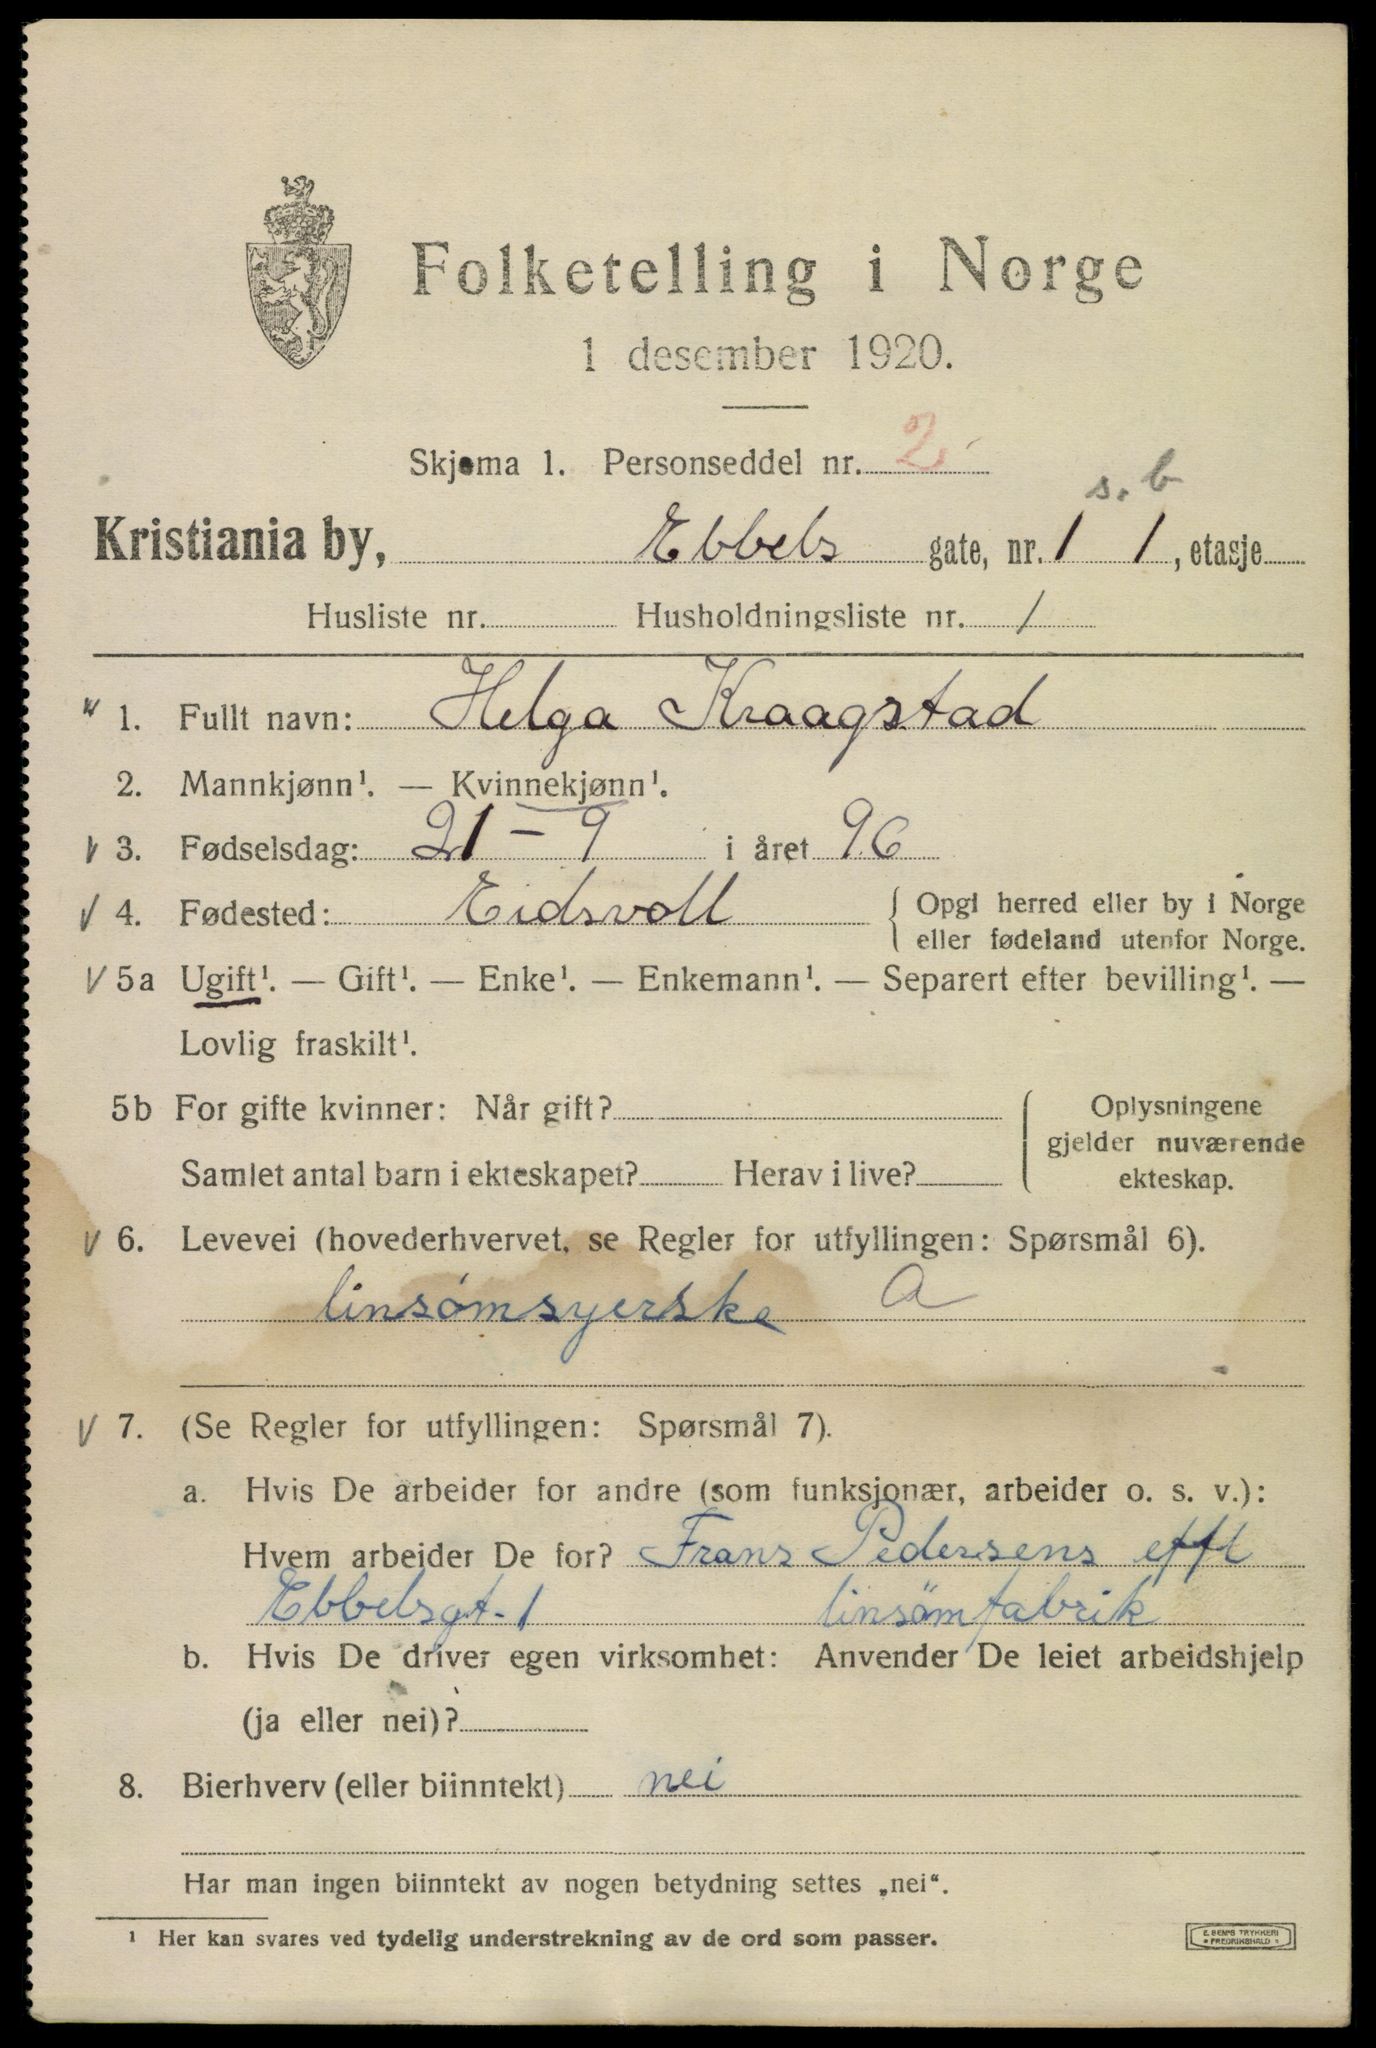 Folketelling i Norge
1 desember 1920.
Skjema 1. Personseddel nr. 2
s. b
Kristiania by, Ebbels gate, nr. 1 1, etasje
Husliste nr. Husholdningsliste nr. 1
1. Fullt navn: Helga Kraagstad
2. Mannkjønn¹. — Kvinnekjønn¹.
3. Fødselsdag: 21 – 9 i året 96
4. Fødested: Eidsvoll { Opgi herred eller by i Norge
eller fødeland utenfor Norge.
5a Ugift¹. — Gift¹. — Enke¹. — Enkemann¹. — Separert efter bevilling¹. —
Lovlig fraskilt¹.
5b For gifte kvinner: Når gift? { Oplysningene
gjelder nuværende
Samlet antal barn i ekteskapet? Herav i live? ekteskap.
6. Levevei (hovederhvervet, se Regler for utfyllingen: Spørsmål 6).
linsømsyerske a
7. (Se Regler for utfyllingen: Spørsmål 7).
a. Hvis De arbeider for andre (som funksjonær, arbeider o. s. v.):
Hvem arbeider De for? Frans Pedersens effl
Ebbelsgt. 1 linsömfabrik
b. Hvis De driver egen virksomhet: Anvender De leiet arbeidshjelp
(ja eller nei)?
8. Bierhverv (eller biinntekt) nei
Har man ingen biinntekt av nogen betydning settes „nei“.
¹ Her kan svares ved tydelig understrekning av de ord som passer.
E. SEM'S TRYKKERI
FREDRIKSHALD